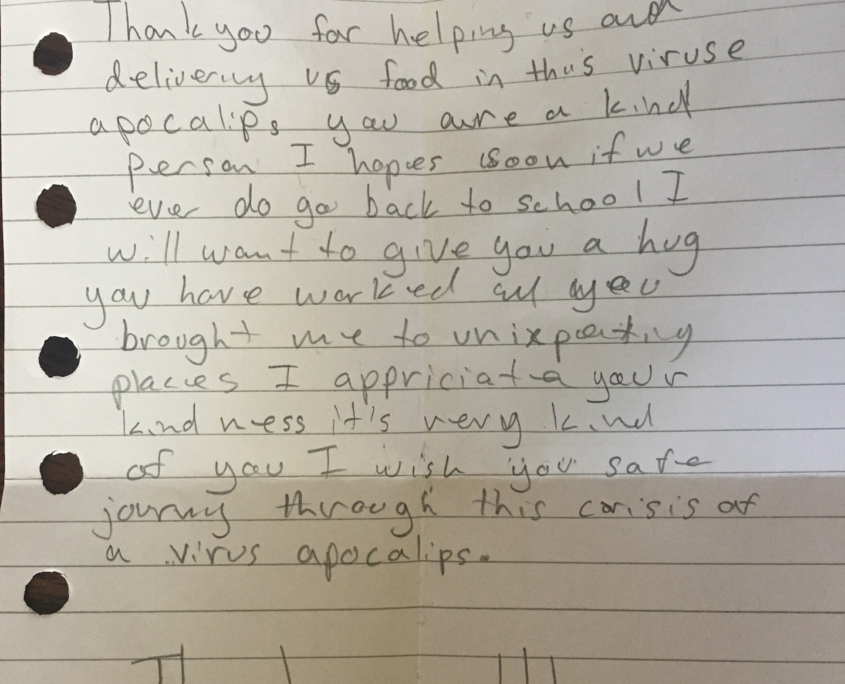 Thank you for helping us and
delivering us food in this viruse
apocalips you are a kind
person I hopes soon if we
ever do go back to school I
will want to give you a hug
you have worked all
brought me to
places I appriciate your
kindness it's very kind
of you I wish you safe
journy through this corisis of
a virus apocalips.